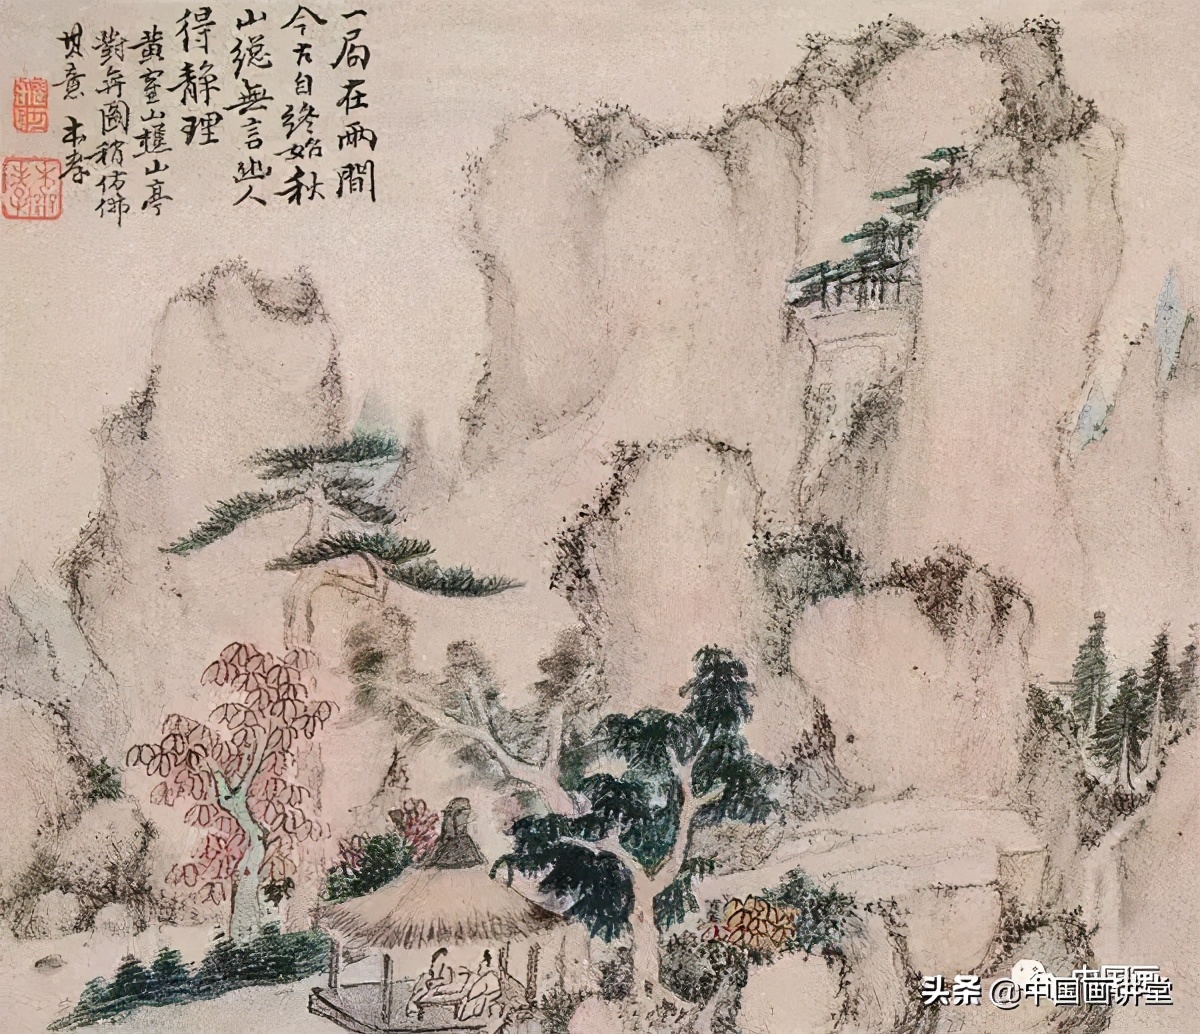 一局在兩間
今古自終始秋
山緫無言幽人
得靜理
黃隺山樵山亭
對弈圖稍仿佛
其意 本孝
中国画
头条 @中国画讲堂